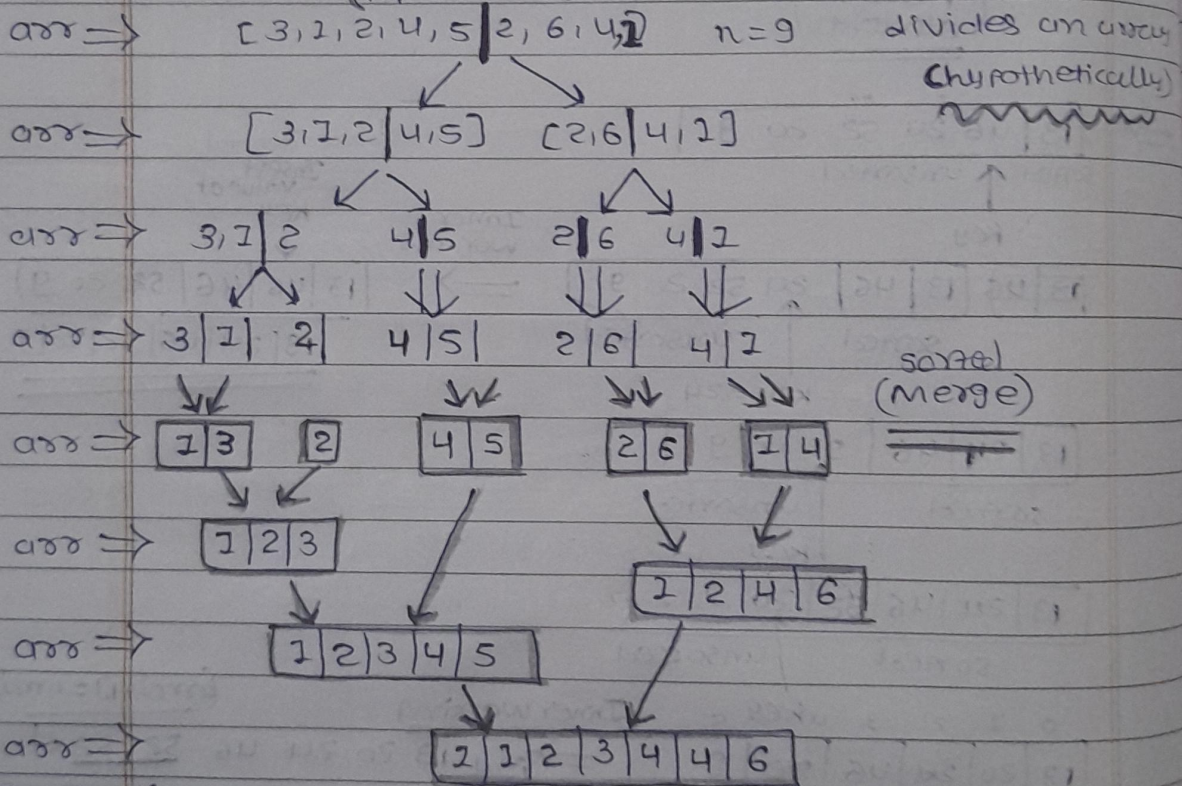 arr ⇒ [3,1,2,4,5|2,6,4,1] n=9 divides an array
(hypothetically)
arr ⇒ [3,1,2|4,5] [2,6|4,1]
arr ⇒ 3,1|2 4|5 2|6 4|1
arr ⇒ 3|1| 2| 4|5| 2|6| 4|1
sorted
(Merge)
arr ⇒ 1|3 2 4|5 2|6 1|4
arr ⇒ 1|2|3
1|2|4|6
arr ⇒ 1|2|3|4|5
arr ⇒ 1|1|2|3|4|4|6